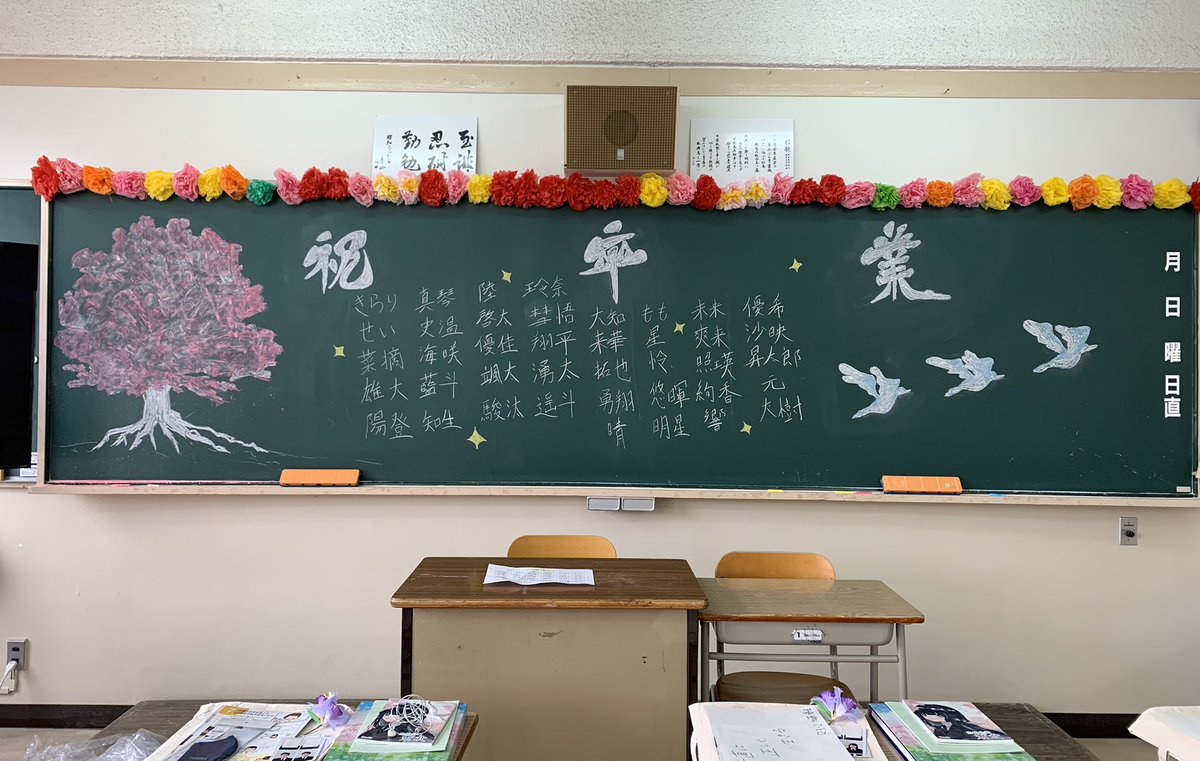 至誠
忍耐
校歌
祝 卒 業
きらり
せい
菜摘
雄大
陽登
真琴
史温
海咲
藍斗
知生
陸
啓太
優佳
颯太
駿汰
玲奈
彗悟
翔平
湧太
遥斗
大知
来華
拓也
勇翔
晴
もも
星
怜
悠暉
明星
未来
爽来
照瑛
絢香
響
優希
沙映
昇太郎
元
大樹
月 日 曜 日直